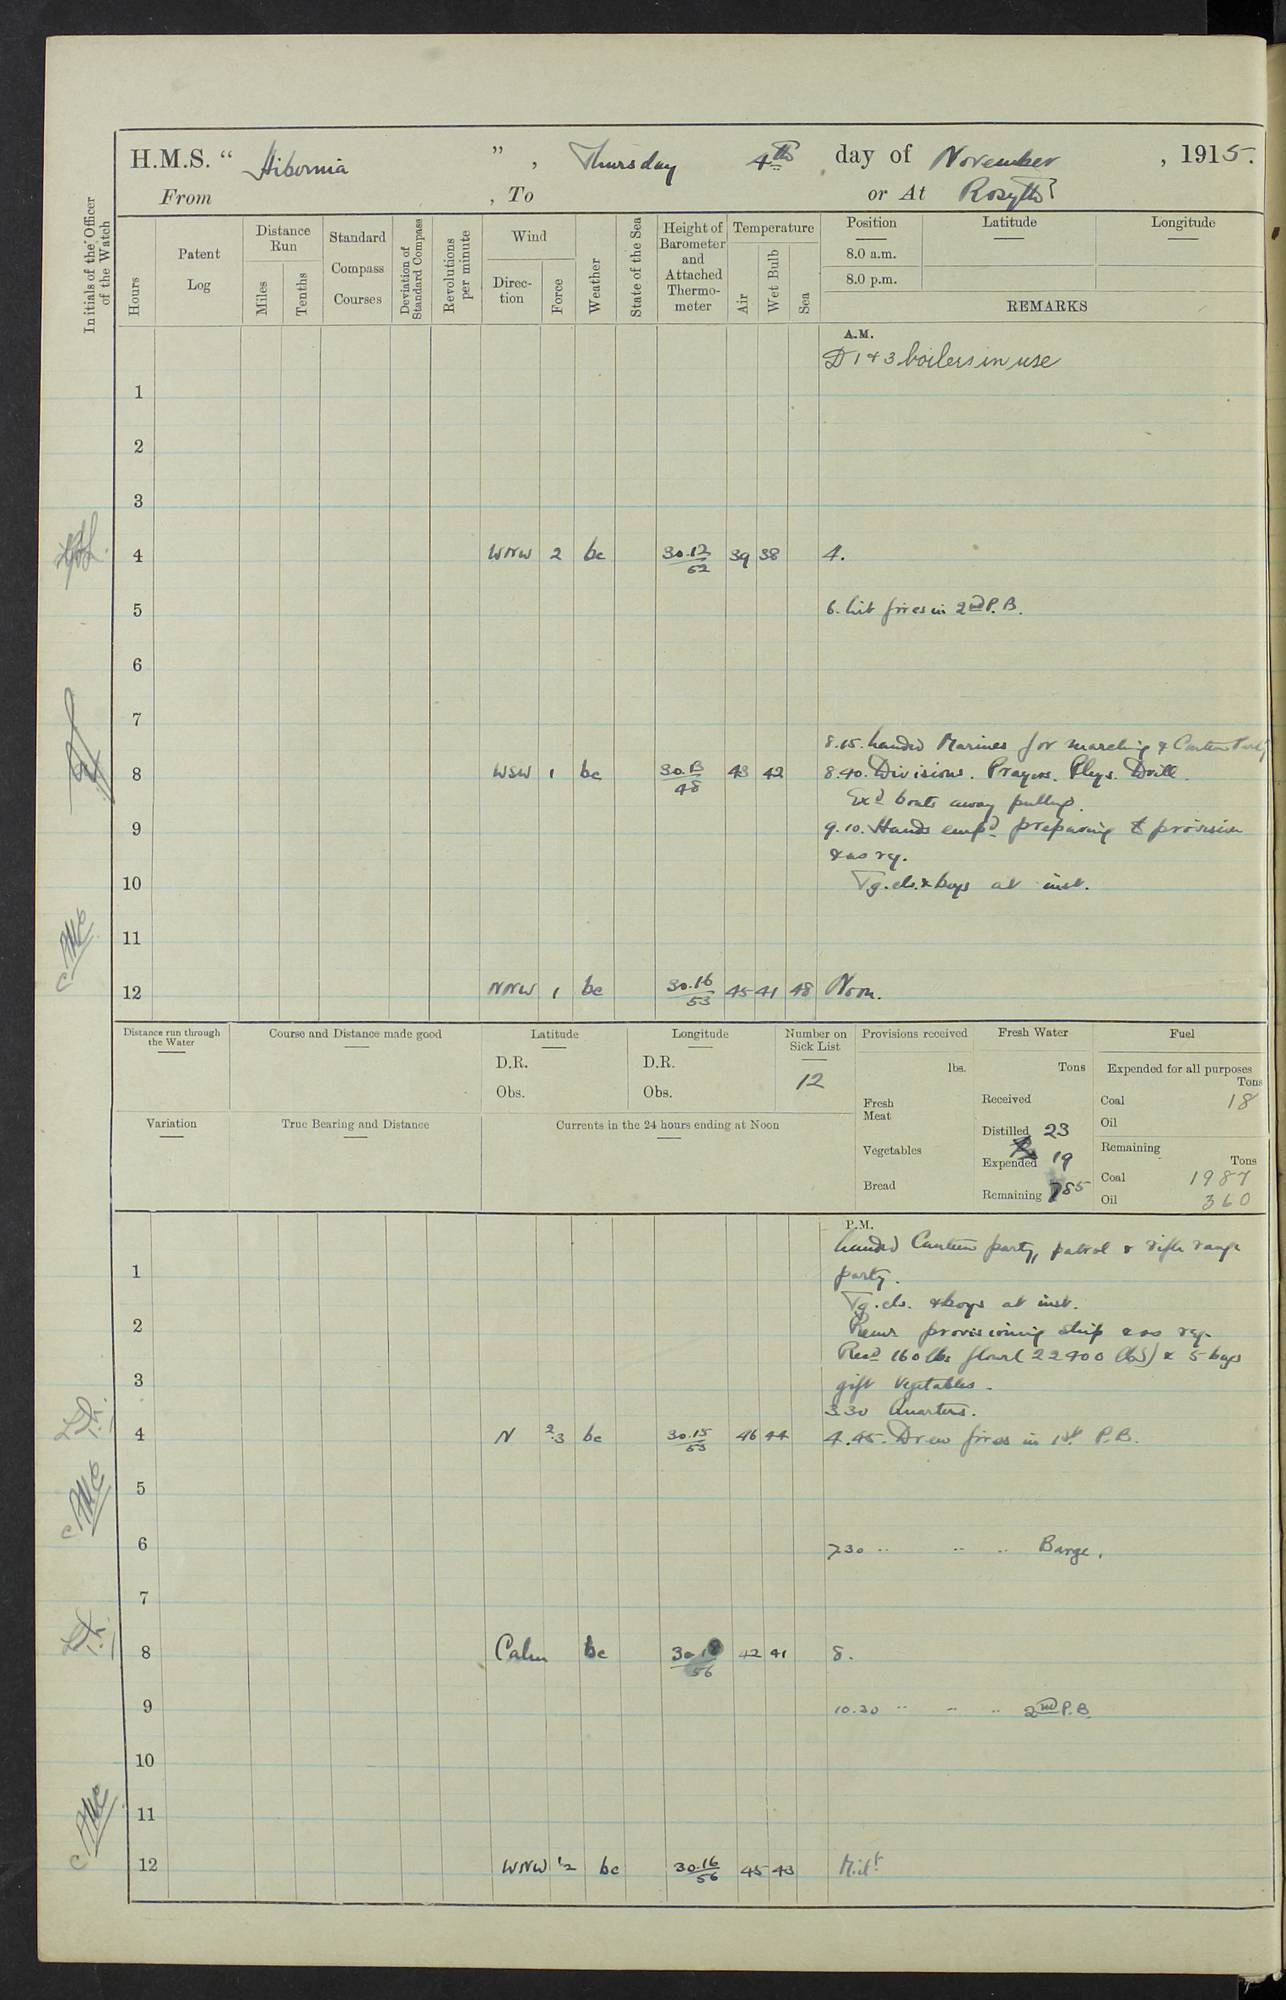 H.M.S. “ Hibernia ” , Thursday 4th day of November , 1915.
From , To or At Rosyth
Initials of the Officer of the Watch
Hours
Patent Log
Distance Run
Miles
Tenths
Standard Compass Courses
Deviation of Standard Compass
Revolutions per minute
Wind
Direc-tion
Force
Weather
State of the Sea
Height of Barometer and Attached Thermo-meter
Temperature
Air
Wet Bulb
Sea
Position Latitude Longitude
8.0 a.m.
8.0 p.m.
REMARKS
A.M.
D 1 & 3 boilers in use
1
2
3
4 WNW 2 bc 30.12/52 39 38 4.
5 6. Lit fires in 2nd P.B.
6
7
8.15. Landed Marines for marching & Canteen Party
8 WSW 1 bc 30.13/48 43 42 8.40. Divisions. Prayers. Phys. Drill.
Exd boats away pulling.
9 9.10. Hands empd preparing to provision
& as req.
10 Tg. cls. & boys at inst.
11
12 NNW 1 bc 30.16/53 45 41 48 Noon.
Distance run through the Water
Course and Distance made good
Latitude
D.R.
Obs.
Longitude
D.R.
Obs.
Number on Sick List
12
Provisions received
lbs.
Fresh Meat
Vegetables
Bread
Fresh Water
Tons
Received
Distilled 23
Expended 19
Remaining 785
Fuel
Expended for all purposes
Tons
Coal 18
Oil
Remaining
Tons
Coal 1987
Oil 360
Variation
True Bearing and Distance
Currents in the 24 hours ending at Noon
P.M.
Landed Canteen party, patrol & rifle range
1 party.
Tg. cls. & boys at inst.
2 Remr provisioning ship & as req.
Recd 160 lbs flour (22400 lbs) & 5 bags
3 gift vegetables.
3.30 Quarters.
4 N 2.3 bc 30.15/53 46 44 4.45. Drew fires in 1st P.B.
5
6 7.30 " " " Barge.
7
8 Calm bc 30.18/56 42 41 8.
9 10.30 " " " 2nd P.B.
10
11
12 WNW 1/2 bc 30.16/56 45 43 Midt